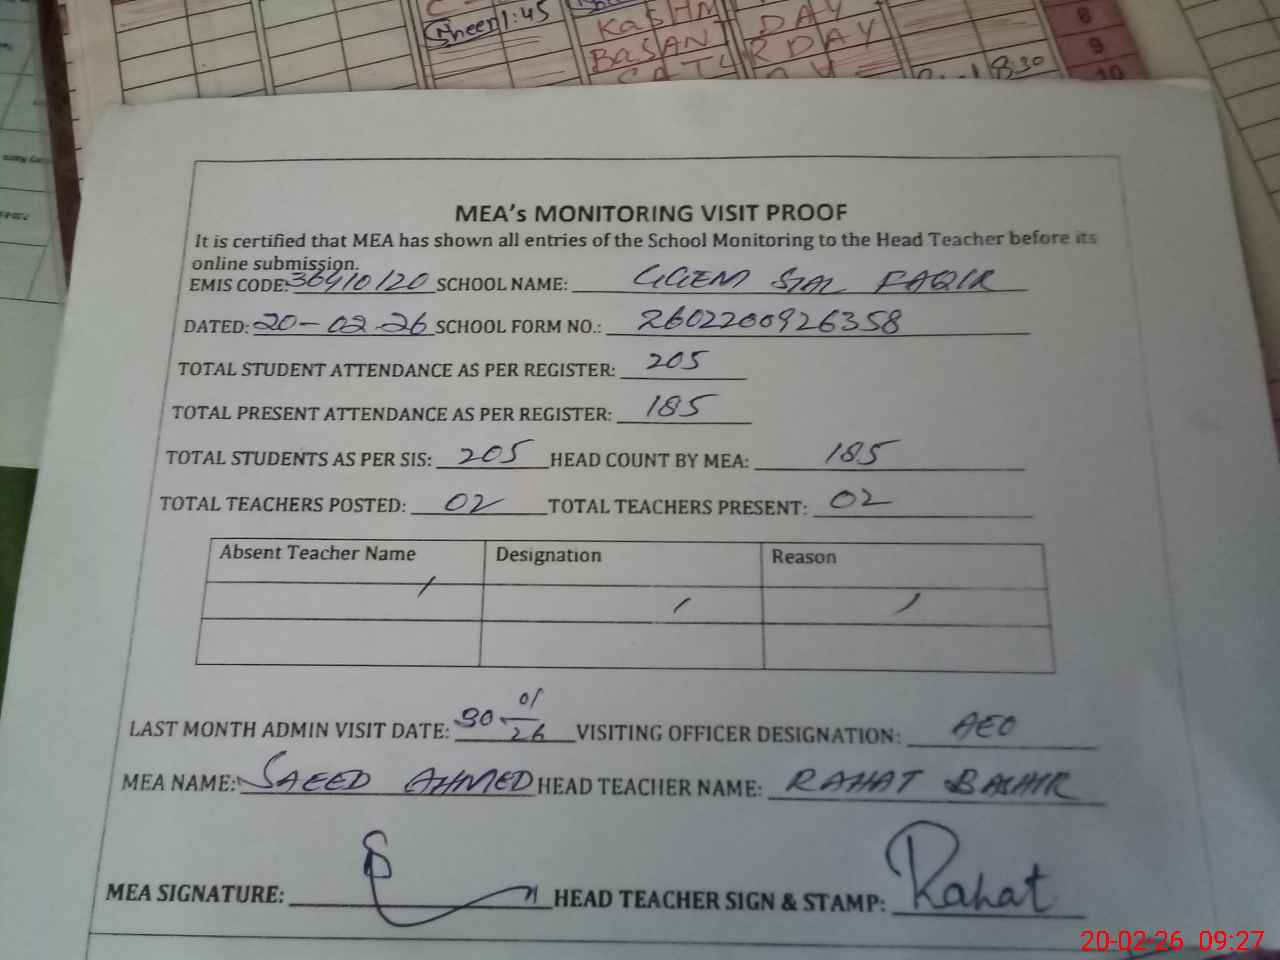 Sheen 1:45
KASHMIR DAY
BASANT R DAY
8:30
8
9
10
MEA's MONITORING VISIT PROOF
It is certified that MEA has shown all entries of the School Monitoring to the Head Teacher before its
online submission.
EMIS CODE: 36410120 SCHOOL NAME: GGEM SIAL FAQIR
DATED: 20-02-26 SCHOOL FORM NO.: 2602200926358
TOTAL STUDENT ATTENDANCE AS PER REGISTER: 205
TOTAL PRESENT ATTENDANCE AS PER REGISTER: 185
TOTAL STUDENTS AS PER SIS: 205 HEAD COUNT BY MEA: 185
TOTAL TEACHERS POSTED: 02 TOTAL TEACHERS PRESENT: 02
Absent Teacher Name Designation Reason
LAST MONTH ADMIN VISIT DATE: 30-01/26 VISITING OFFICER DESIGNATION: AEO
MEA NAME: SAEED AHMED HEAD TEACHER NAME: RAHAT BASHIR
MEA SIGNATURE: HEAD TEACHER SIGN & STAMP: Rahat
20-02-26 09:27